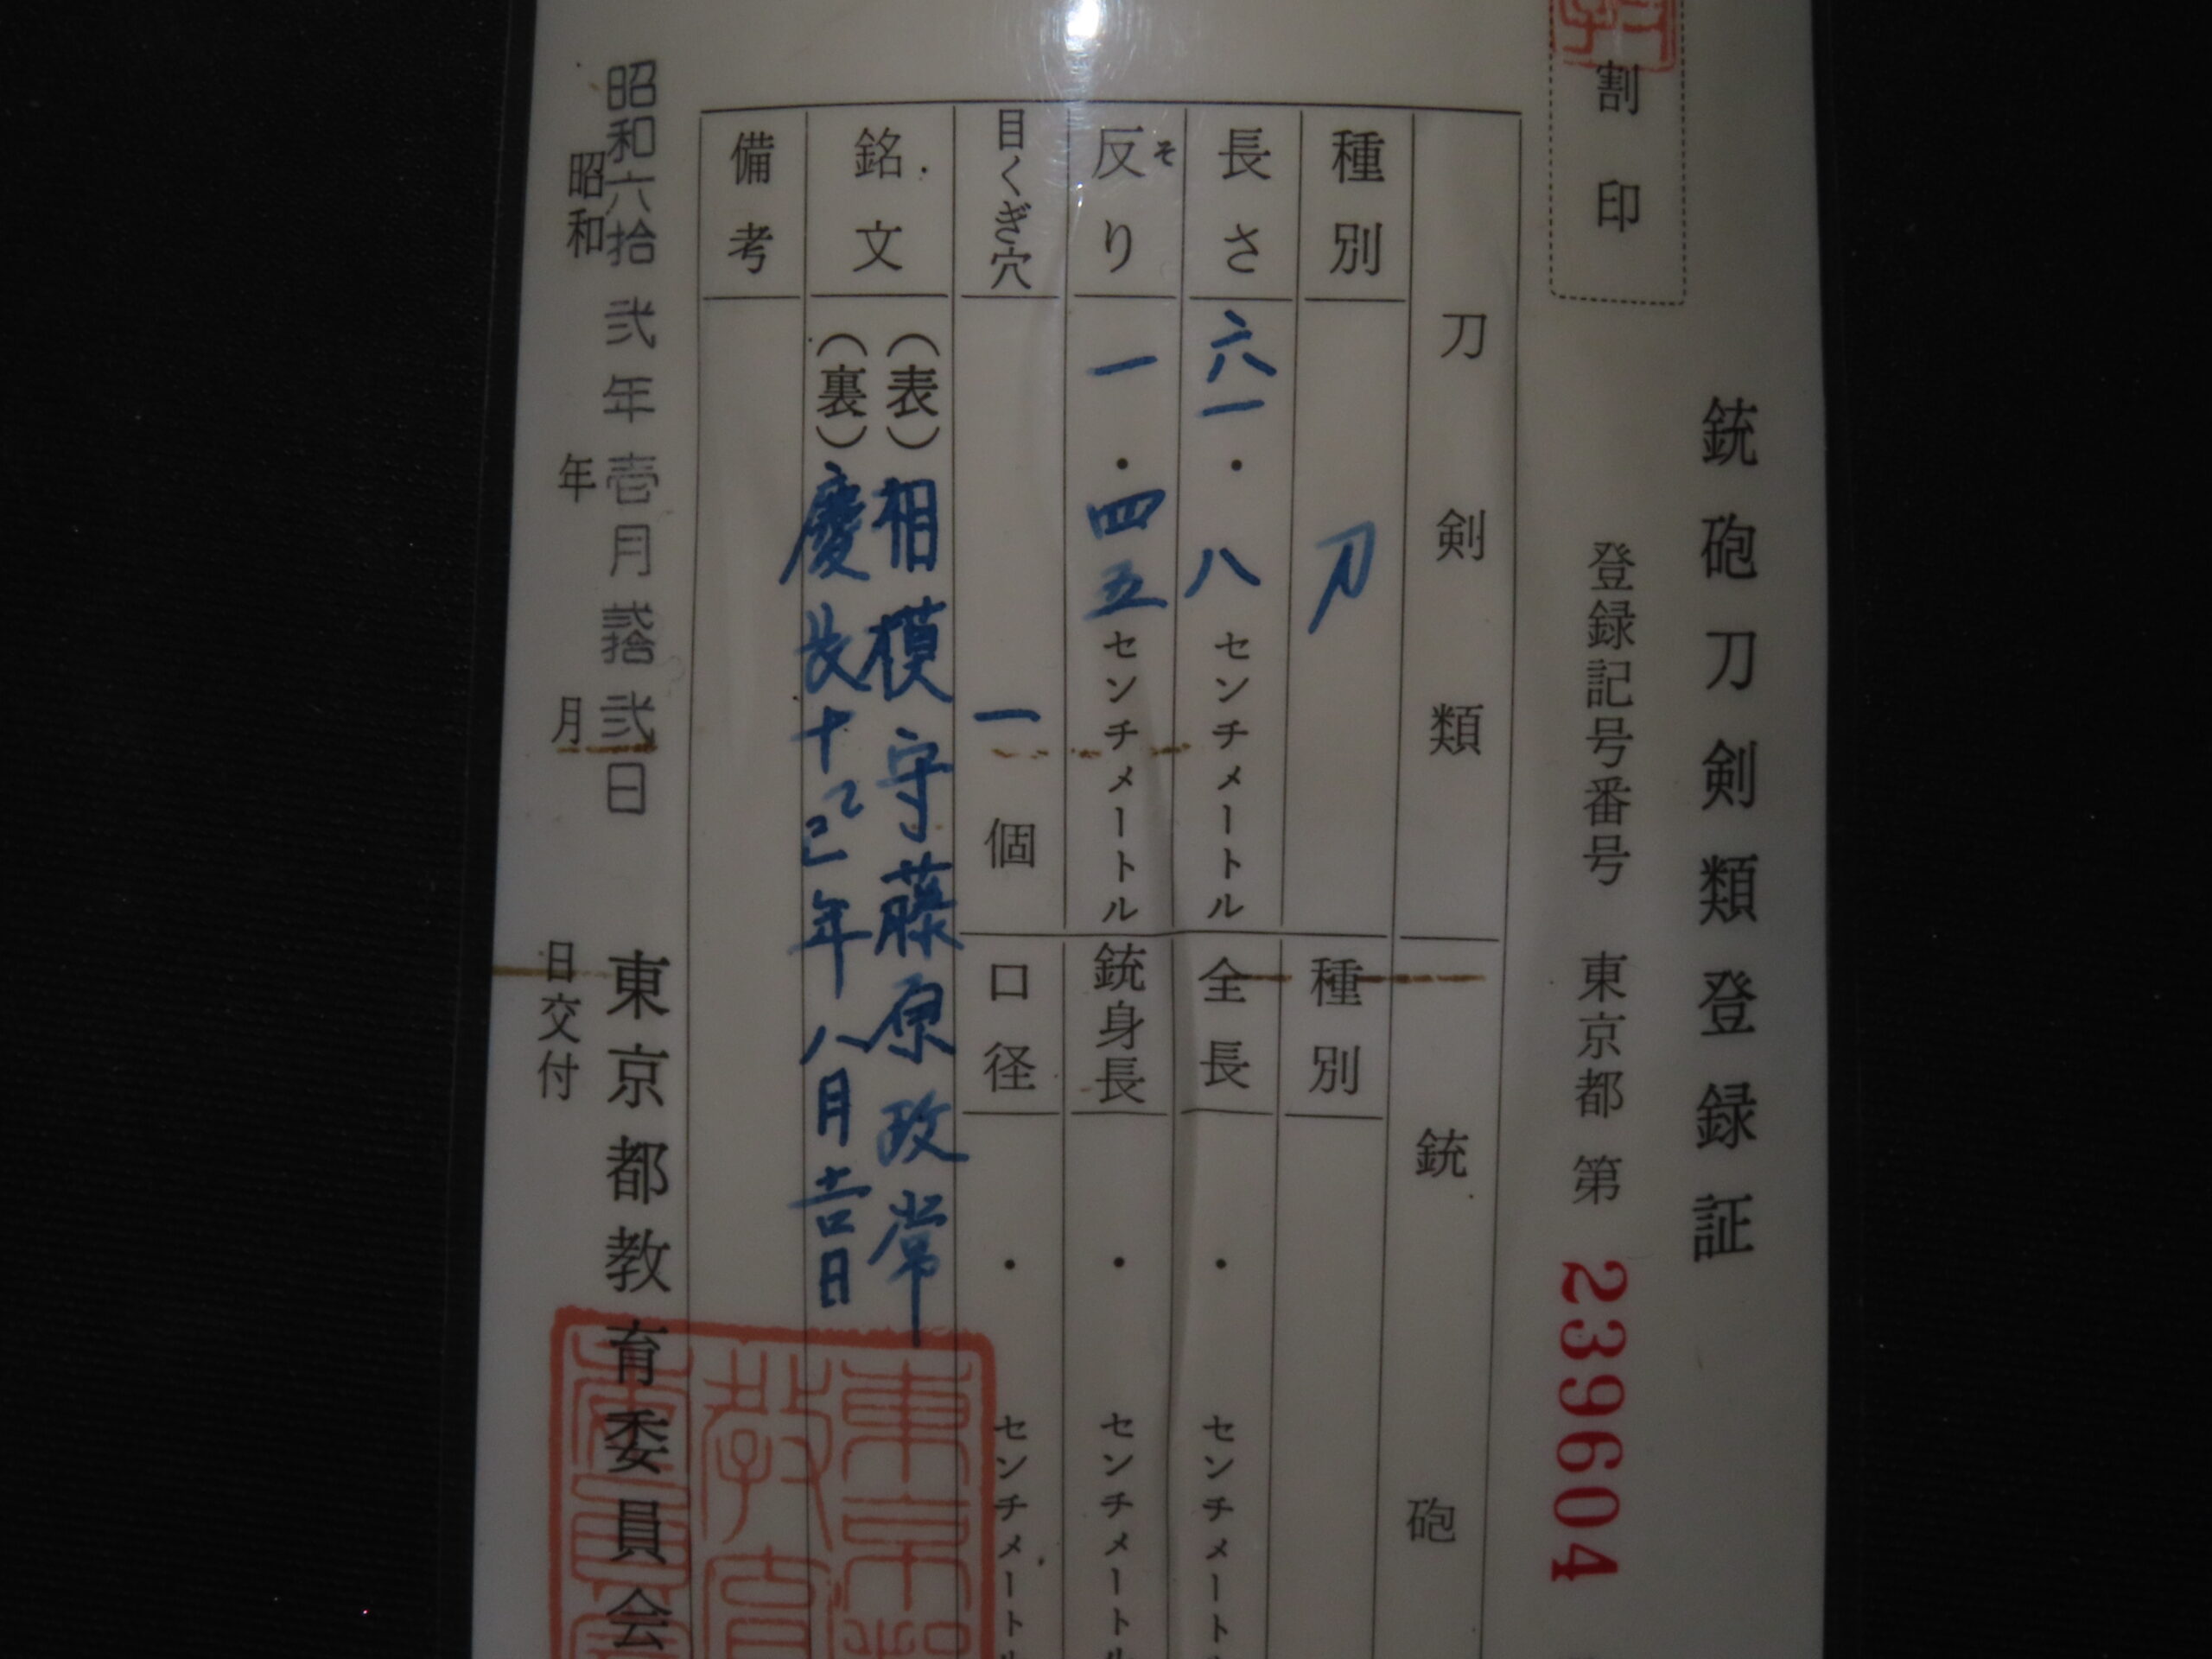 銃砲刀剣類登録証
割印
登録記号番号 東京都 第 239604
刀剣類
銃砲
種別 刀
種別
長さ 六一・八 センチメートル
全長 ・ センチメートル
反り 一・四五 センチメートル
そ
銃身長 ・ センチメートル
目くぎ穴 一個
口径 ・ センチメートル
銘文 (表) 相模守藤原政常
(裏) 慶長十 年八月吉日
備考
昭和六拾弐年壱月弐拾弐日 東京都教育委員会
昭和 年 月 日交付